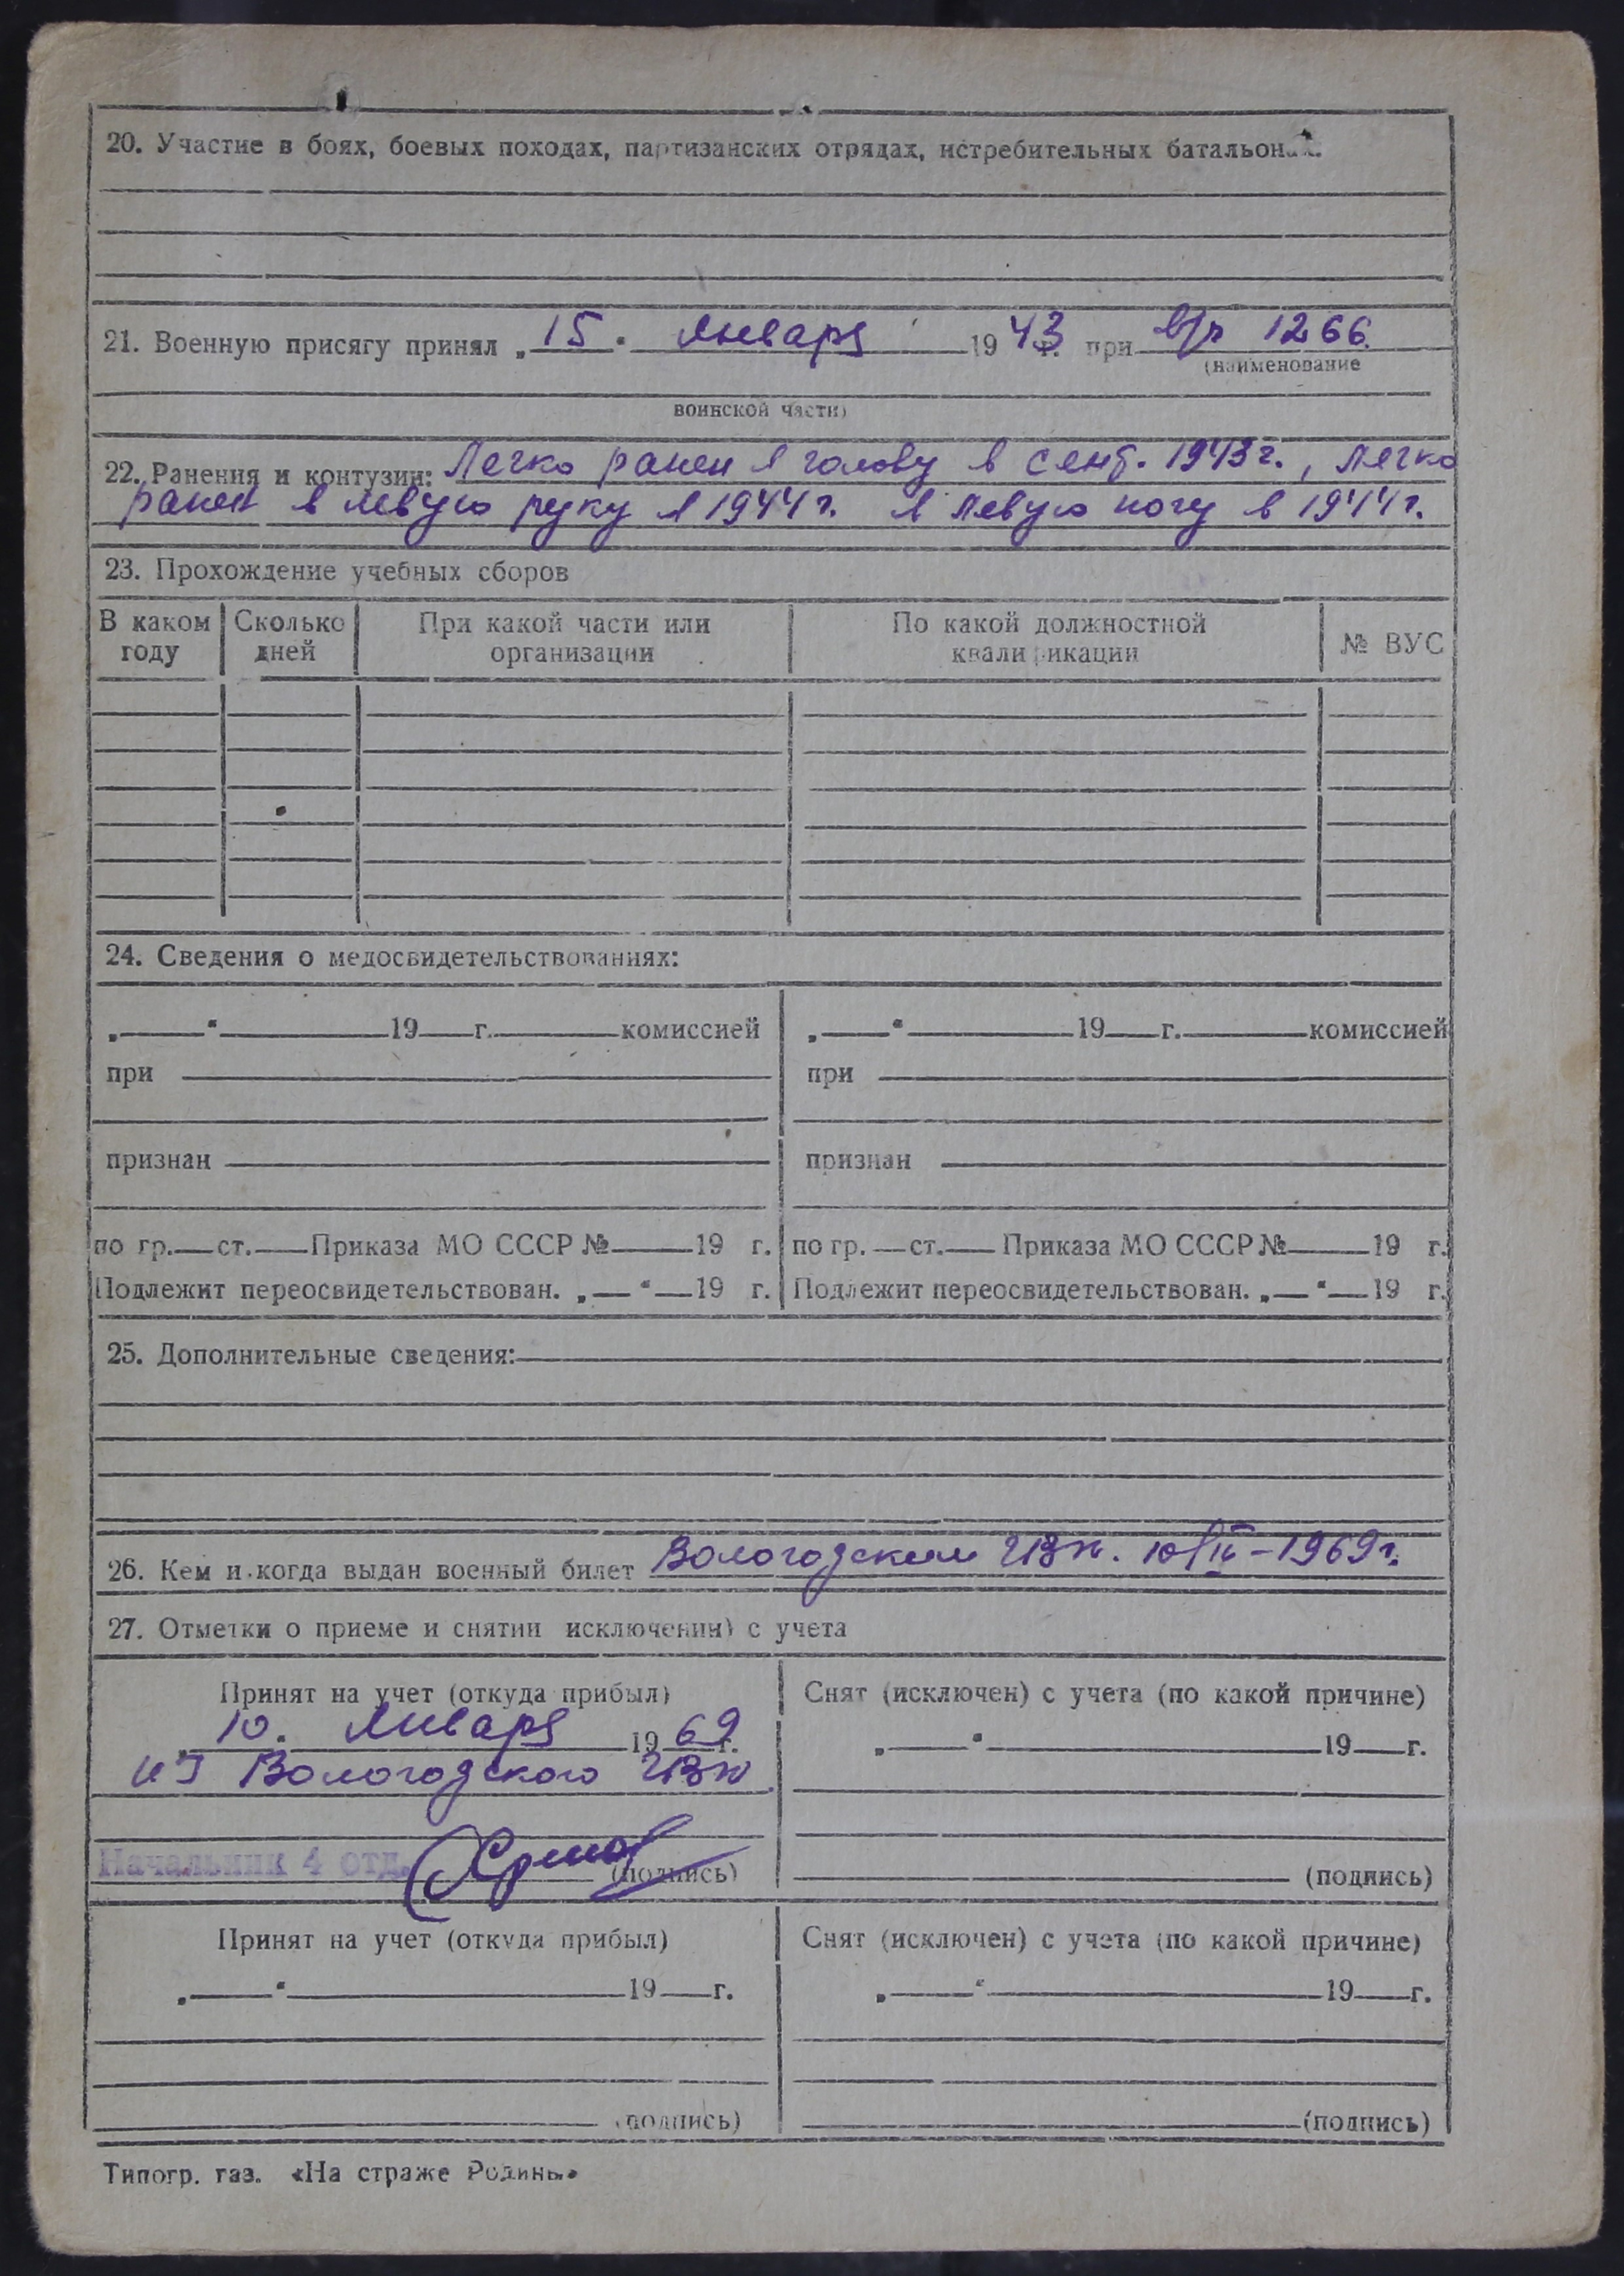 20. Участие в боях, боевых походах, партизанских отрядах, истребительных батальонах.
21. Военную присягу принял „15" января 1943 г. при в/ч 1266
(наименование
воинской части)
22. Ранения и контузии: Легко ранен в голову в сент. 1943 г., легко
ранен в левую руку в 1944 г. в левую ногу в 1944 г.
23. Прохождение учебных сборов
В каком году Сколько дней При какой части или организации По какой должностной квалификации № ВУС
24. Сведения о медосвидетельствованиях:
„ " 19 г. комиссией „ " 19 г. комиссией
при при
признан признан
по гр. ст. Приказа МО СССР № 19 г. по гр. ст. Приказа МО СССР № 19 г.
Подлежит переосвидетельствован. „ " 19 г. Подлежит переосвидетельствован. „ " 19 г.
25. Дополнительные сведения:
26. Кем и когда выдан военный билет Вологодским ГВК. 1969 г.
27. Отметки о приеме и снятии исключении) с учета
Принят на учет (откуда прибыл) Снят (исключен) с учета (по какой причине)
10. января 1969 г. „ " 19 г.
из Вологодского ГВК
Начальник 4 отд. (подпись) (подпись)
Принят на учет (откуда прибыл) Снят (исключен) с учета (по какой причине)
„ " 19 г. „ " 19 г.
(подпись) (подпись)
Типогр. газ. «На страже Родины»